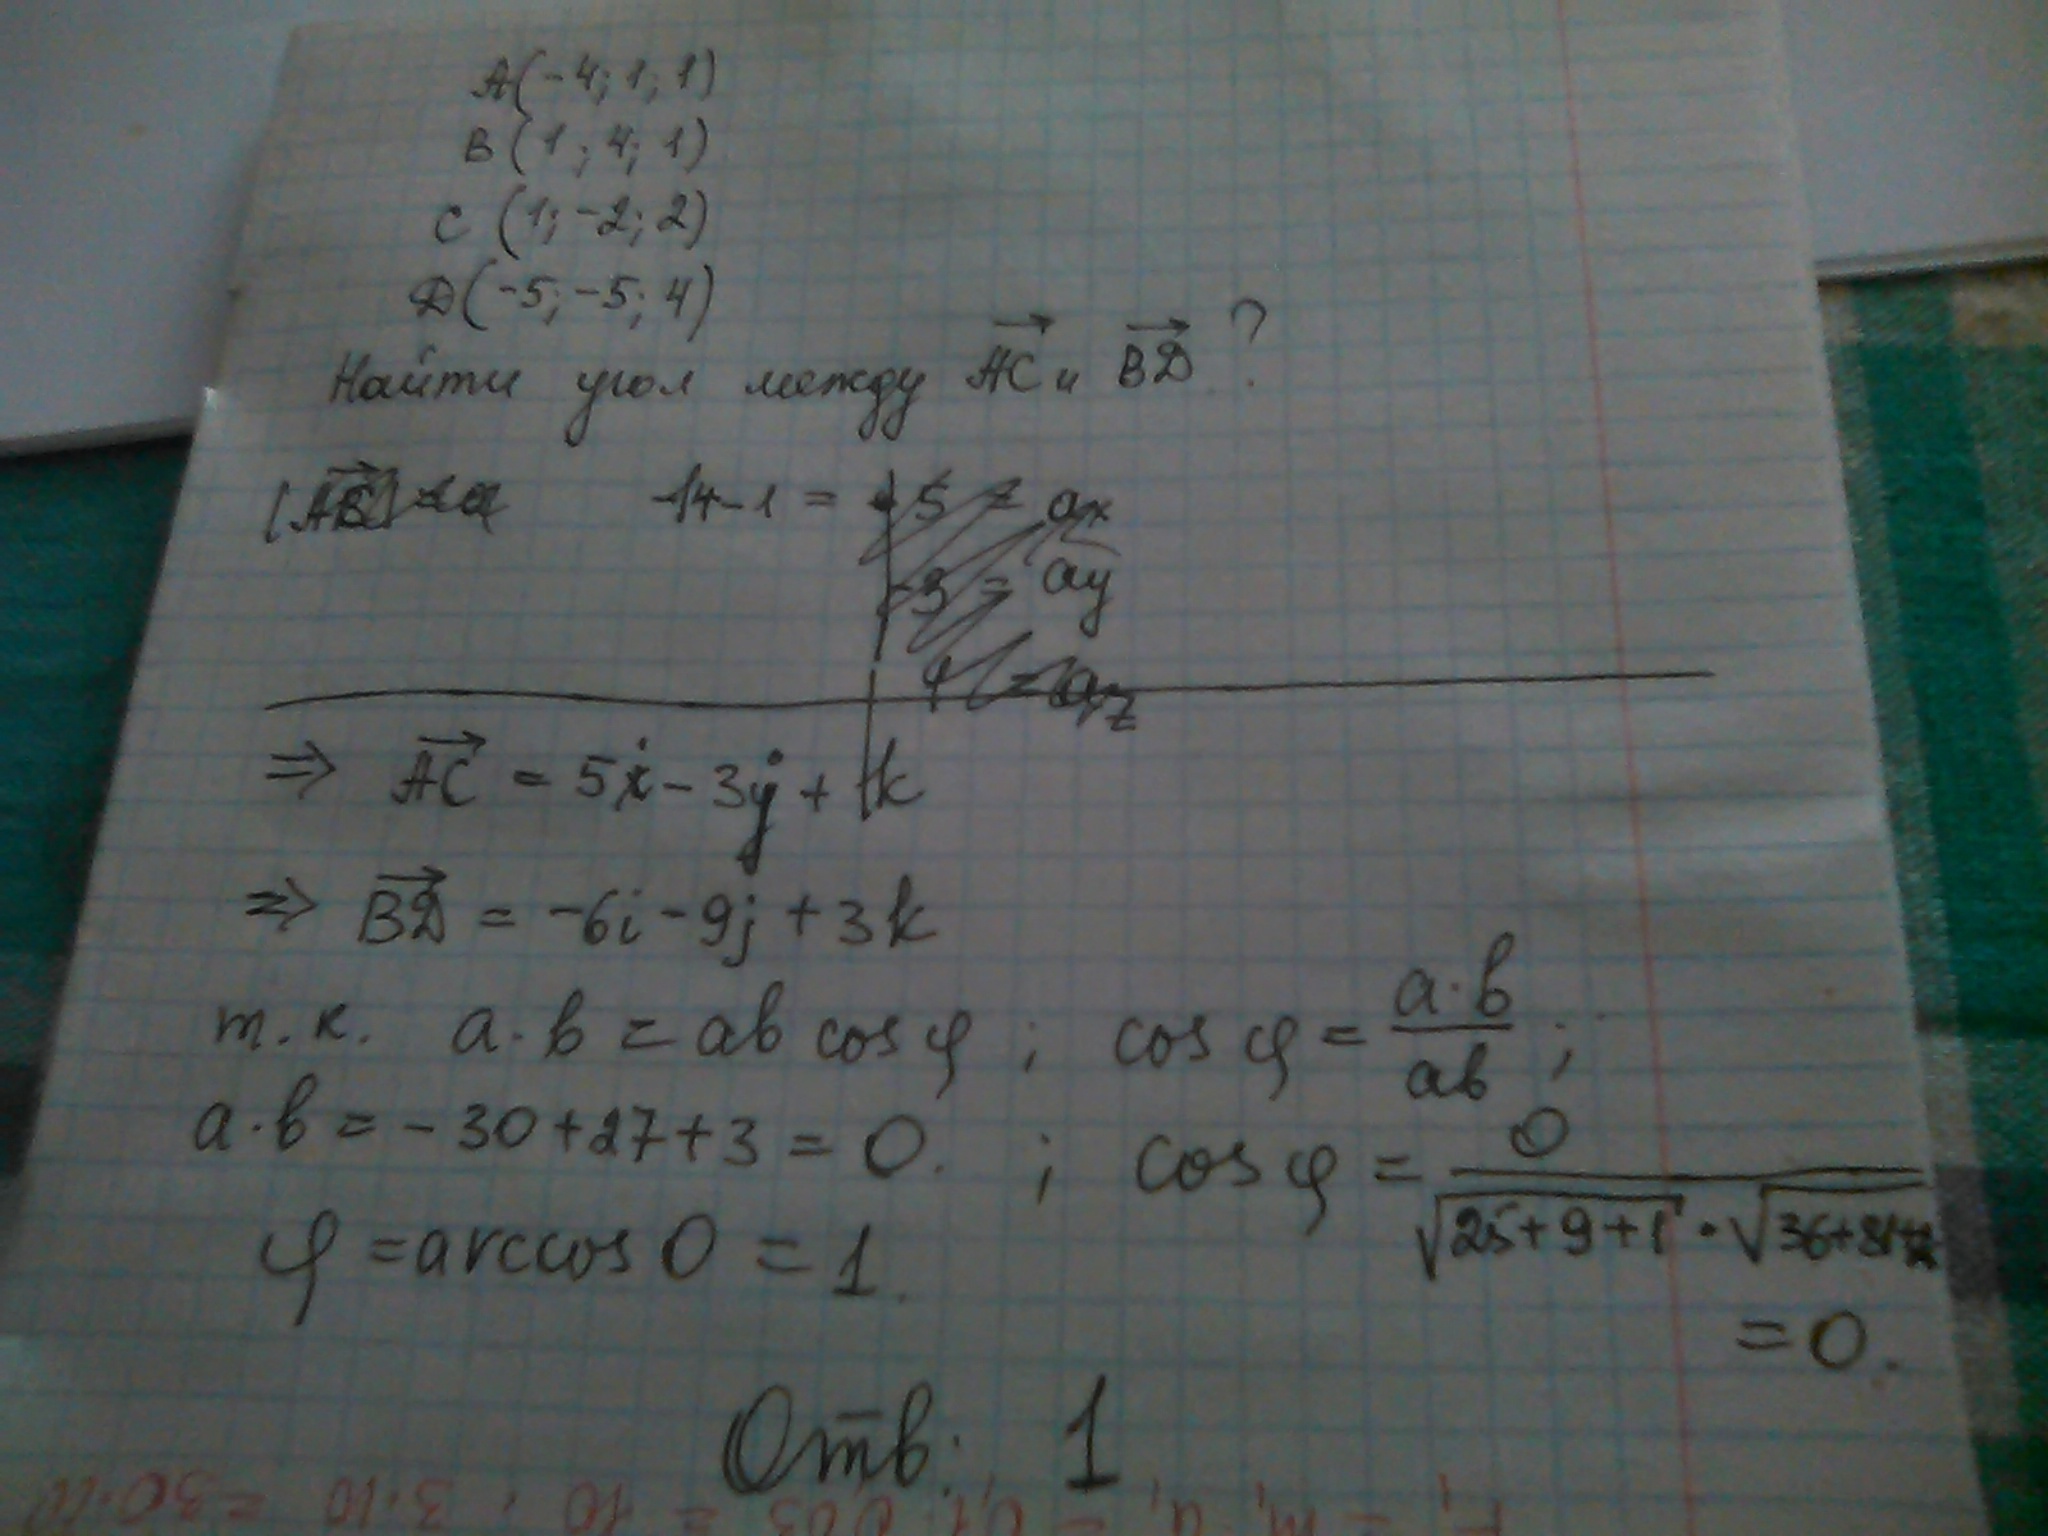 A(-4; 1; 1)
B(1; 4; 1)
C (1; -2; 2)
D(-5; -5; 4)
Найти угол между AC и BD ?
-4-1 = 5 = ax
-3 = ay
1 = az
⇒ AC = 5i - 3j + 1k
⇒ BD = -6i - 9j + 3k
т.к. a·b = ab cos φ ; cos φ = a·b / ab ;
a·b = -30 + 27 + 3 = 0. ; cos φ = 0 / √25+9+1 · √36+81+
= 0.
φ = arccos 0 = 1.
Отв: 1